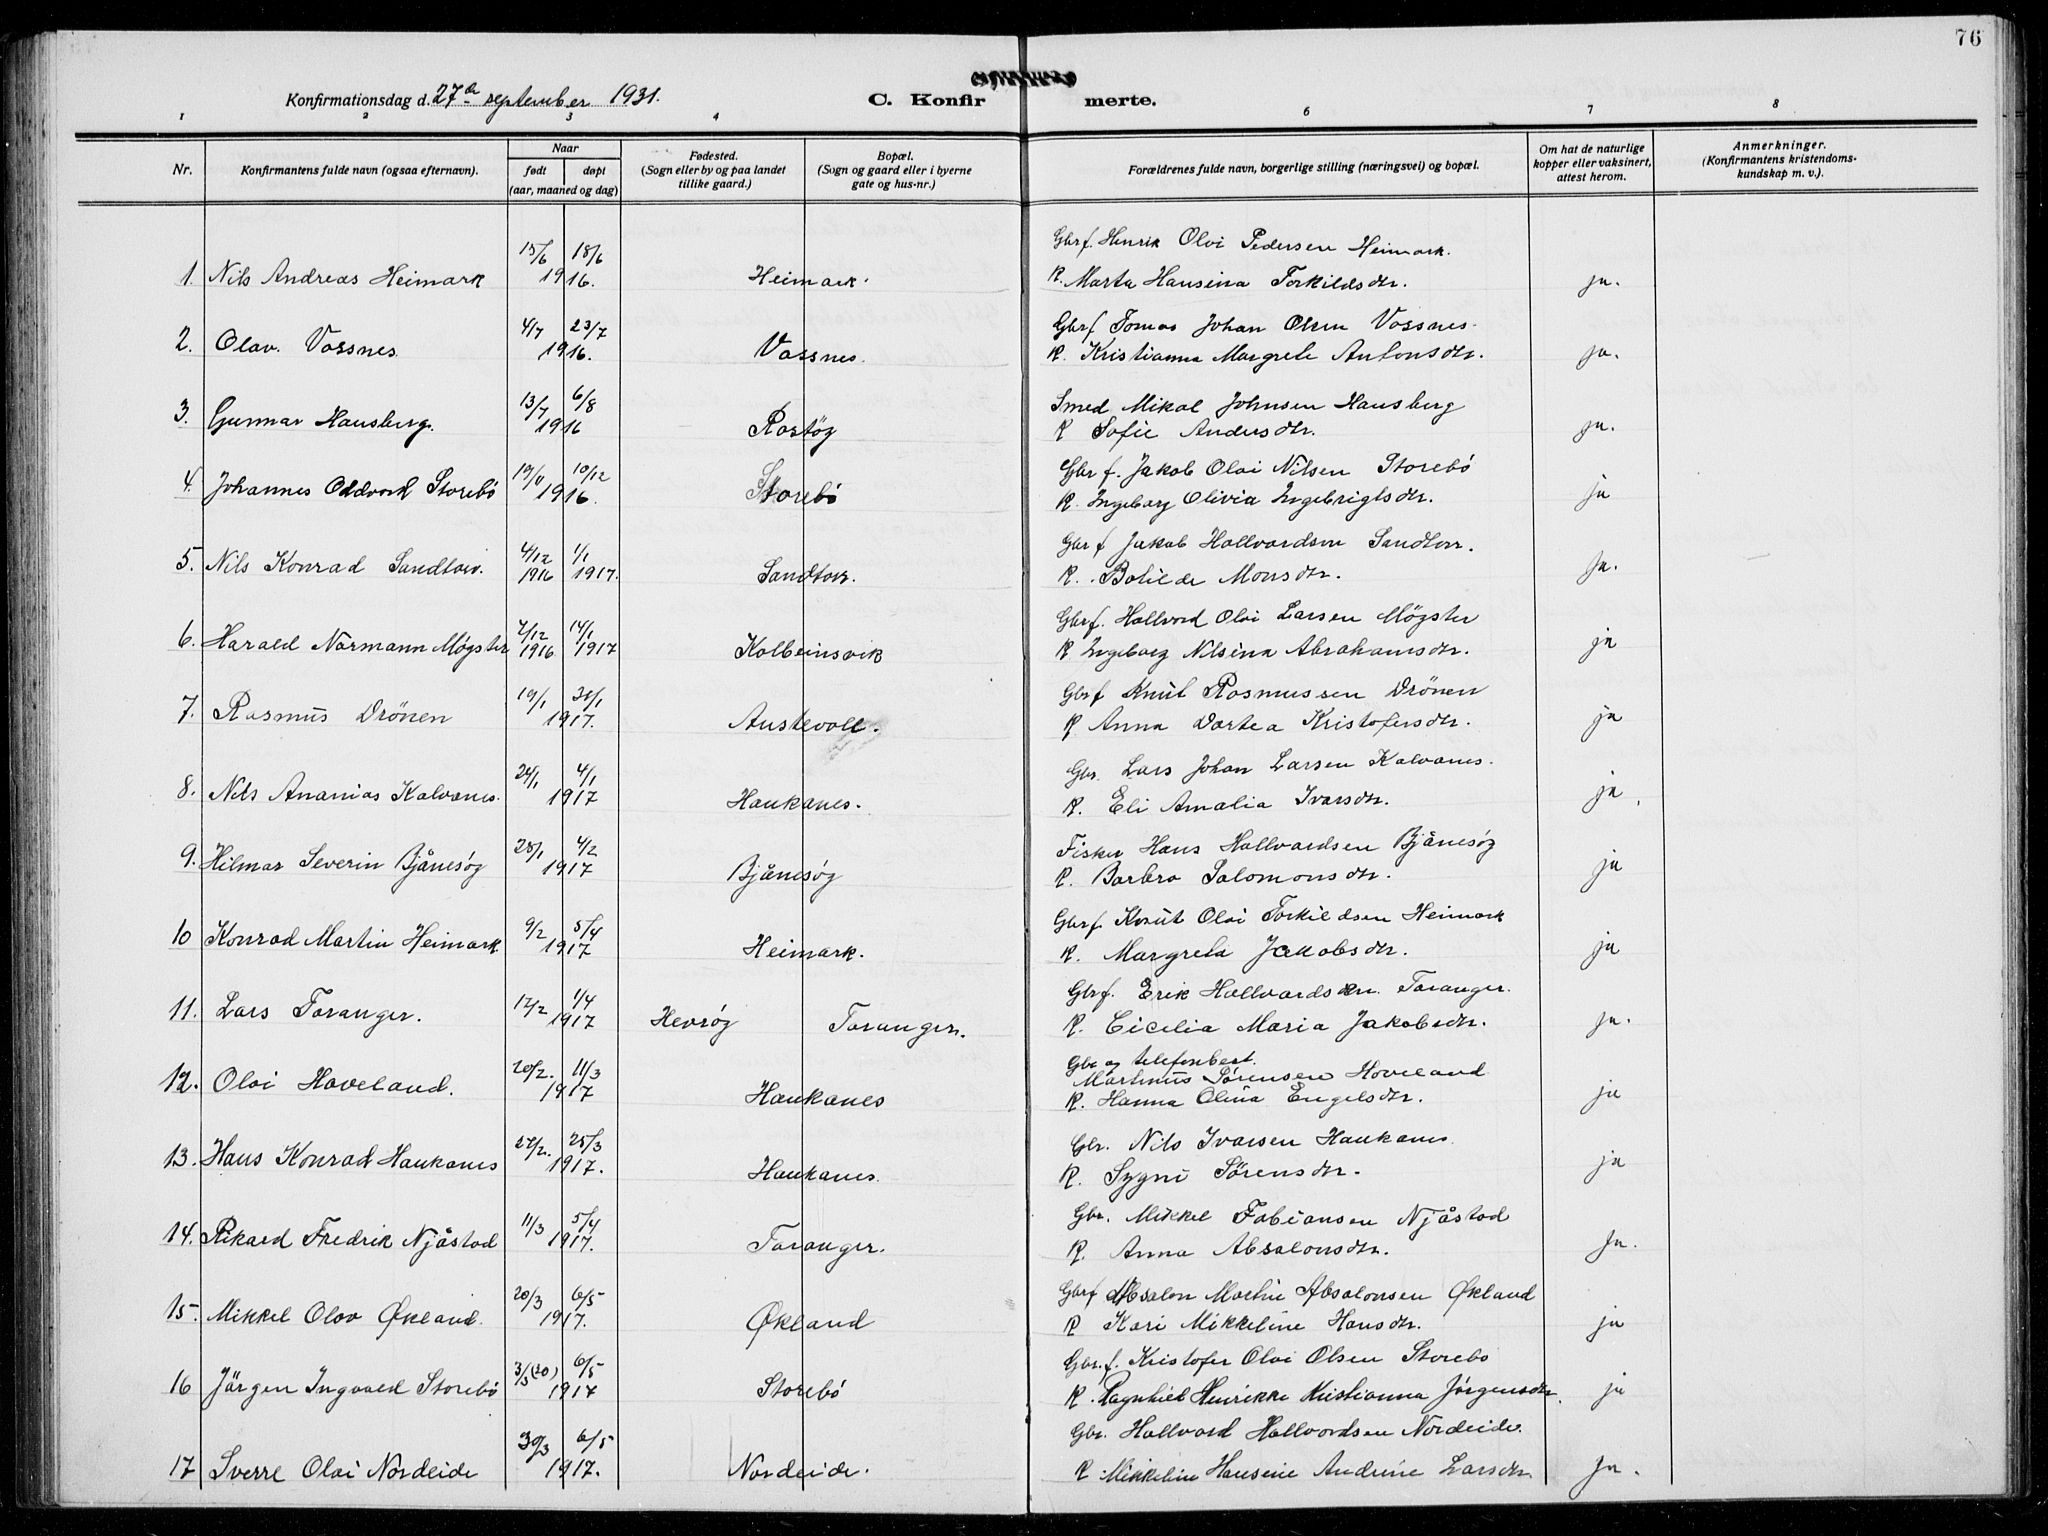 76
Konfirmationsdag d. 27de september 1931.
C. Konfirmerte.
1 2 3 4 6 7 8
Nr.
Konfirmantens fulde navn (ogsaa efternavn).
Naar
født døpt
(aar, maaned og dag)
Fødested.
(Sogn eller by og paa landet
tillike gaard.)
Bopæl.
(Sogn og gaard eller i byerne
gate og hus-nr.)
Forældrenes fulde navn, borgerlige stilling (næringsvei) og bopæl.
Om hat de naturlige
kopper eller vaksinert,
attest herom.
Anmerkninger.
(Konfirmantens kristendoms-
kundskap m. v.).
15/6 18/6 Gbrf. Henrik Olai Pedersen Heimark.
1. Nils Andreas Heimark 1916. Heimark. K. Marta Hansina Torkildsdtr. ja.
4/7 23/7 Gbrf Tomas Johan Olsen Vossnes.
2. Olav. Vossnes. 1916. Vossnes. K. Kristianna Margrete Antonsdtr. ja.
13/7 6/8 Smed Mikal Johnsen Hausberg
3. Gunnar Hausberg. 1916 Rostøg K Sofie Andersdtr. ja.
19/11 10/12 Gbrf. Jakob Olai Nilsen Storebö
4. Johannes Oddvord Storebö 1916. Storebö K. Ingeborg Olivia Ingebrigtsdtr. ja
4/12 1/1 Gbrf Jakob Hallvardsen Sandtorv.
5. Nils Konrad Sandtorv. 1916 1917. Sandtorv. K. Botilde Monsdtr. Ja.
7/12 14/1 Gbrf. Hallvord Olai Larsen Møgster
6. Harald Normann Møgster 1916 1917 Kolbeinsvik K. Ingeborg Nilsina Abrahamsdtr. ja
19/1 Gbrf Knut Rasmussen Drönen
7. Rasmus Drönen 1917. Austevoll. K Anna Dortea Kristofersdtr. ja
24/1 4/1 Gbr. Lars Johan Larsen Kalvanes.
8. Nils Ananias Kalvanes. 1917 Haukanes. K. Eli Amalia Ivarsdtr. ja
28/1 4/2 Fisker Hans Hallvardsen Bjånesøg
9. Hilmar Severin Bjånesøg 1917 Bjånesøg K. Barbro Salomonsdtr. ja
9/2 5/4 Gbrf. Knut Olai Torkildsen Heimark
10 Konrad Martin Heimark 1917 Heimark. K. Margreta Jakobsdtr. ja
17/2 1/4 Gbrf. Erik Hallvardsen. Toranger.
11. Lars Toranger. 1917 Hevrøg Toranger. K. Cicelia Maria Jakobsdtr. ja.
20/2. 11/3 Gbr og telefonbest.
Martinus Sørensen Hoveland
12. Olai Hoveland. 1917 Haukanes K. Hanna Olina Engelsdtr. ja
27/2. 25/3 Gbr. Nils Ivarsen Haukanes
13. Hans Konrad Haukanes 1917. Haukanes. K. Sygni Sørensdtr. ja
11/3 5/4 Gbr. Mikkel Fabiansen Njåstad
14. Rikard Fredrik Njåstad 1917. Toranger. K. Anna Absalonsdtr. Ja.
20/3 6/5 Gbrf Absalon Martin Absalonsen Økland
15. Mikkel Olav Økland. 1917. Økland K Kari Mikkeline Hansdtr. ja
3/3 (20) 6/5 Gbr.f. Kristofer Olai Olsen Storebö
16 Jörgen Ingvald Storebö 1917 Storebö K. Ragnhild Henrikke Kristianna Jörgensdtr. ja
30/3 6/5 Gbr. Hallvord Hallvordsen Nordeide.
17 Sverre Olai Nordeide 1917. Nordeide. K Mikkeline Hansine Andrine Larsdtr. Ja.